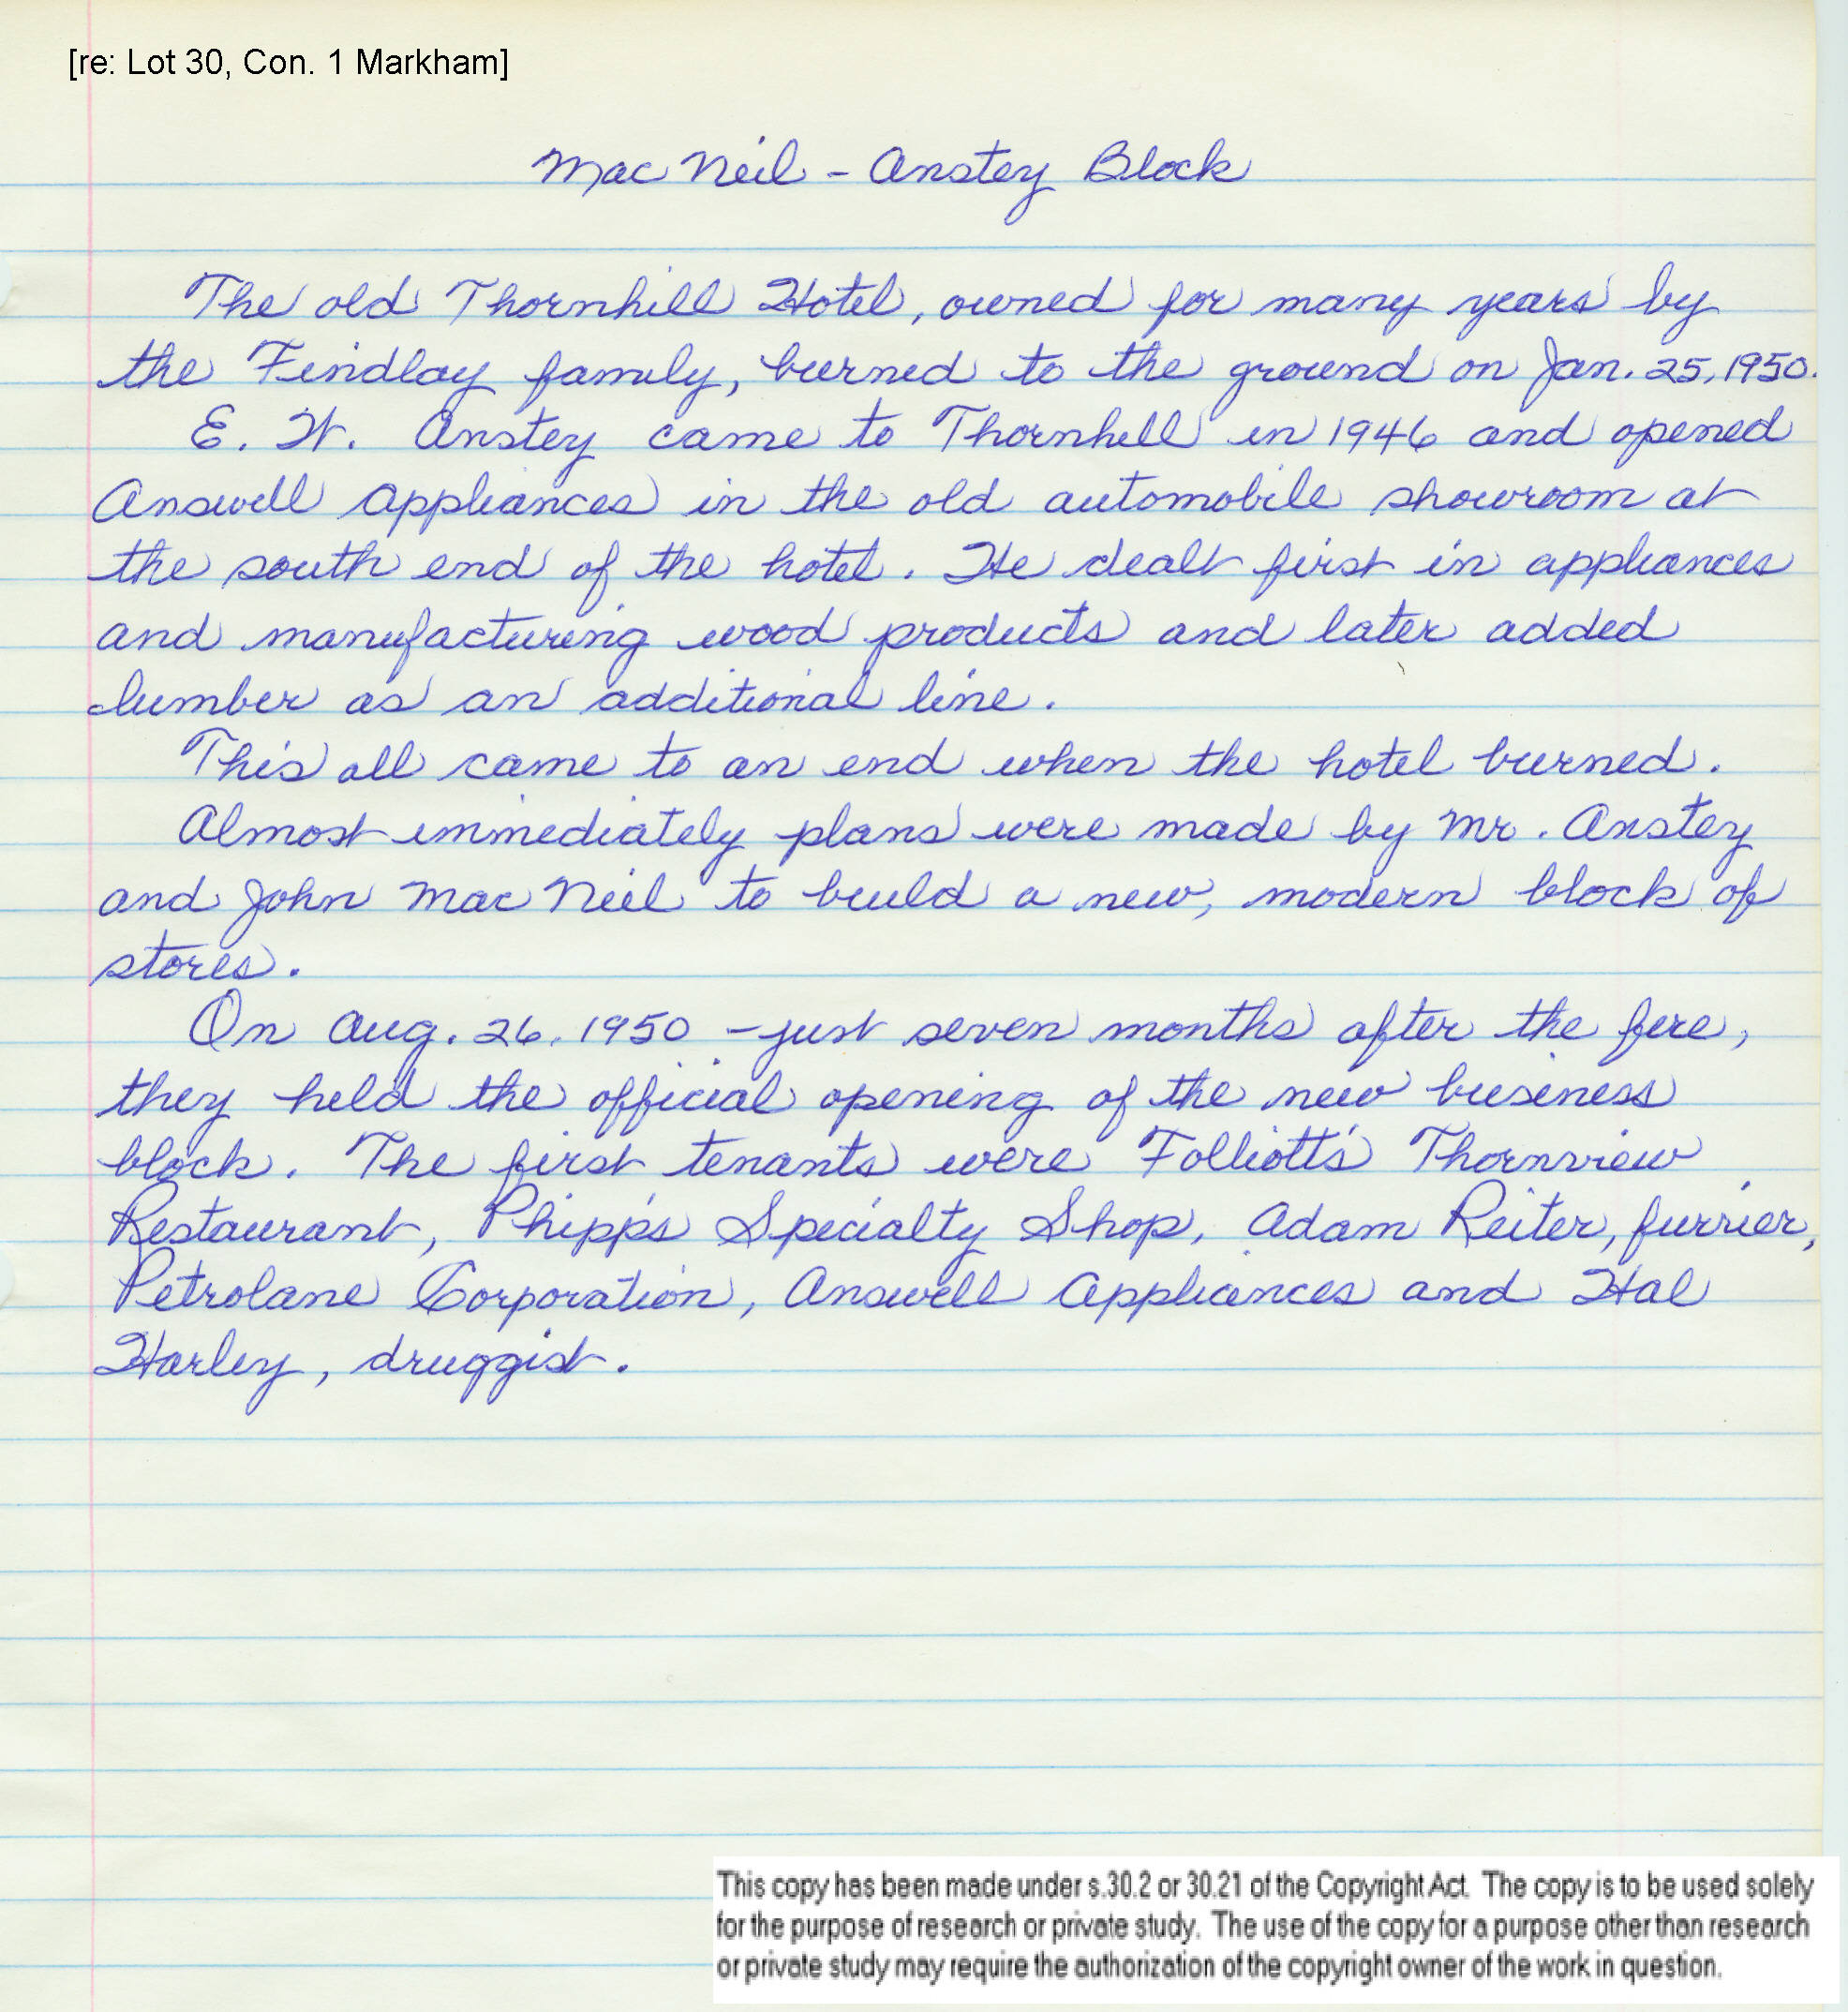 [re: Lot 30, Con. 1 Markham]
Mac Neil - Anstey Block
The old Thornhill Hotel, owned for many years by
the Findlay family, burned to the ground on Jan. 25, 1950.
E. W. Anstey came to Thornhill in 1946 and opened
Answell Appliances in the old automobile showroom at
the south end of the hotel. He dealt first in appliances
and manufacturing wood products and later added
lumber as an additional line.
This all came to an end when the hotel burned.
Almost immediately plans were made by Mr. Anstey
and John Mac Neil to build a new, modern block of
stores.
On Aug. 26, 1950 - just seven months after the fire,
they held the official opening of the new business
block. The first tenants were Folliott's Thornview
Restaurant, Phipp's Specialty Shop, Adam Reiter, furrier,
Petrolane Corporation, Answell Appliances and Hal
Harley, druggist.
This copy has been made under s.30.2 or 30.21 of the Copyright Act. The copy is to be used solely
for the purpose of research or private study. The use of the copy for a purpose other than research
or private study may require the authorization of the copyright owner of the work in question.